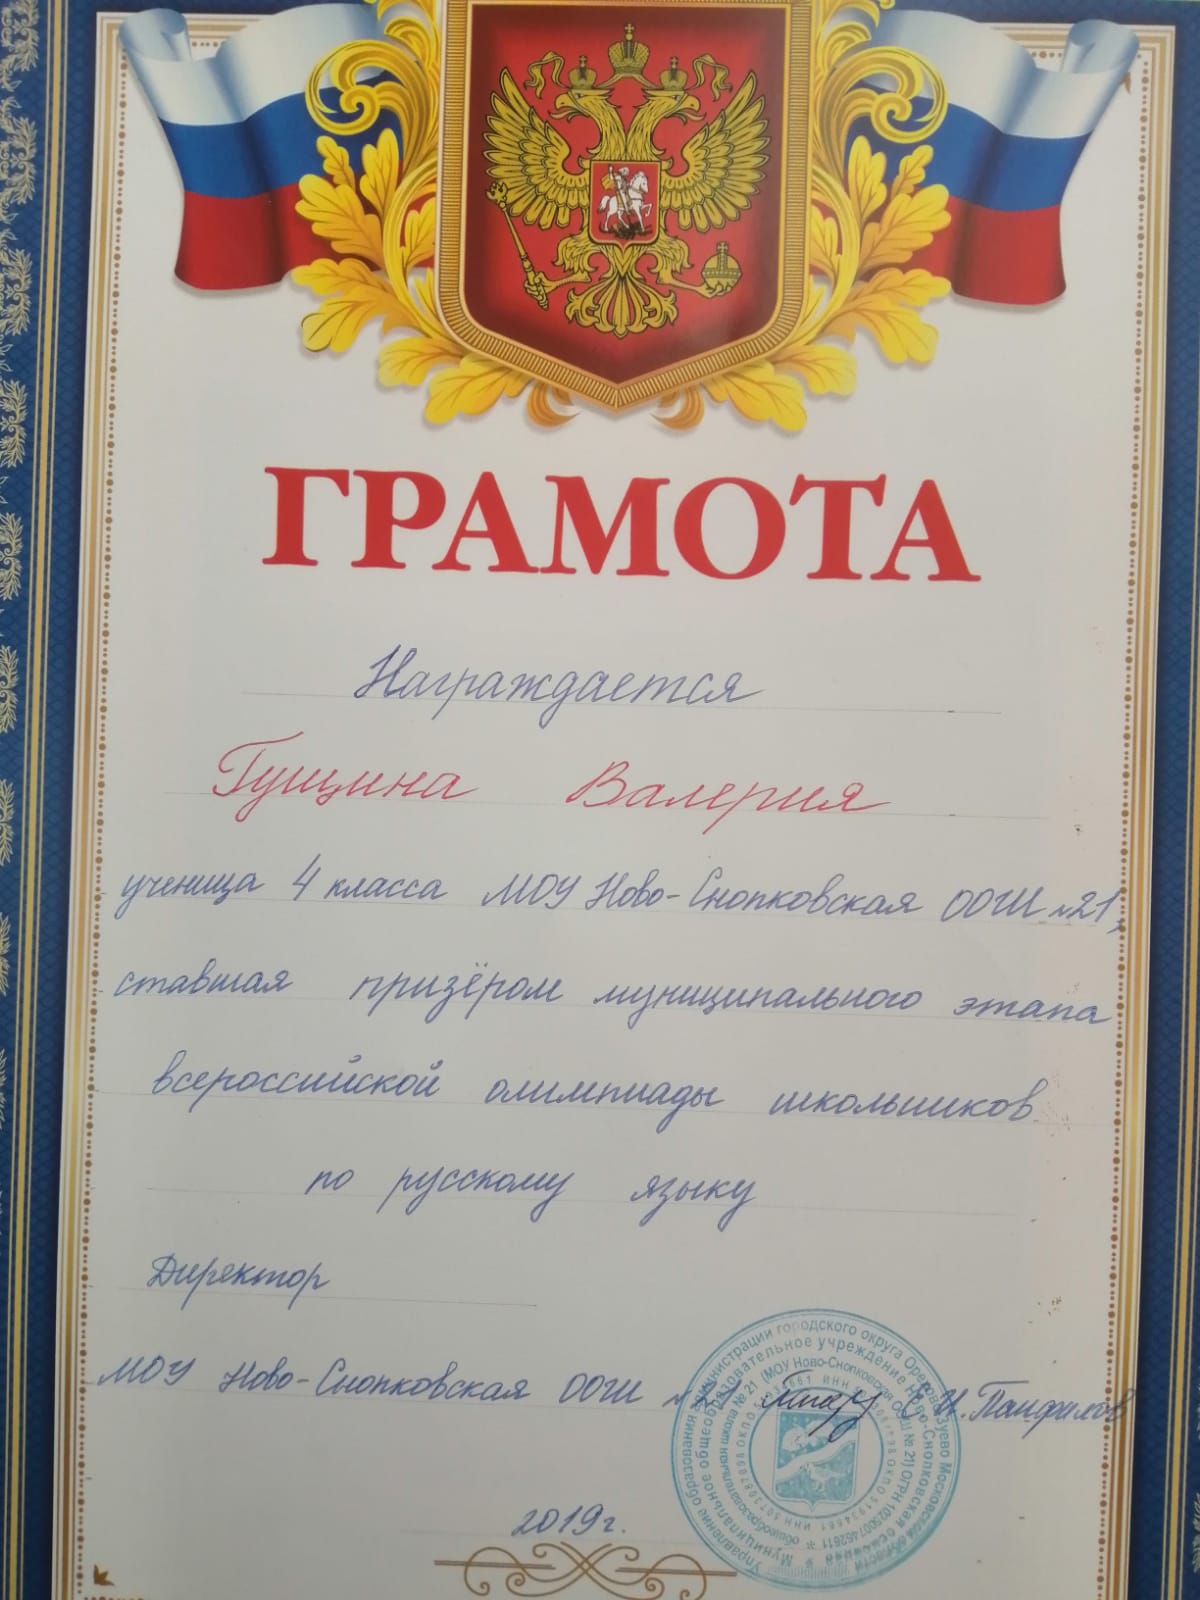 ГРАМОТА
Награждается
Гущина Валерия
ученица 4 класса МОУ Ново-Снопковская ООШ №21,
ставшая призёром муниципального этапа
всероссийской олимпиады школьников
по русскому языку
Директор
МОУ Ново-Снопковская ООШ №21 Е.И. Панфилов
Управление образования администрации городского округа Орехово-Зуево Московской области
Муниципальное общеобразовательное учреждение Ново-Снопковская основная
общеобразовательная школа № 21 (МОУ Ново-Снопковская ООШ № 21) ОГРН 1025007462611
2019г.